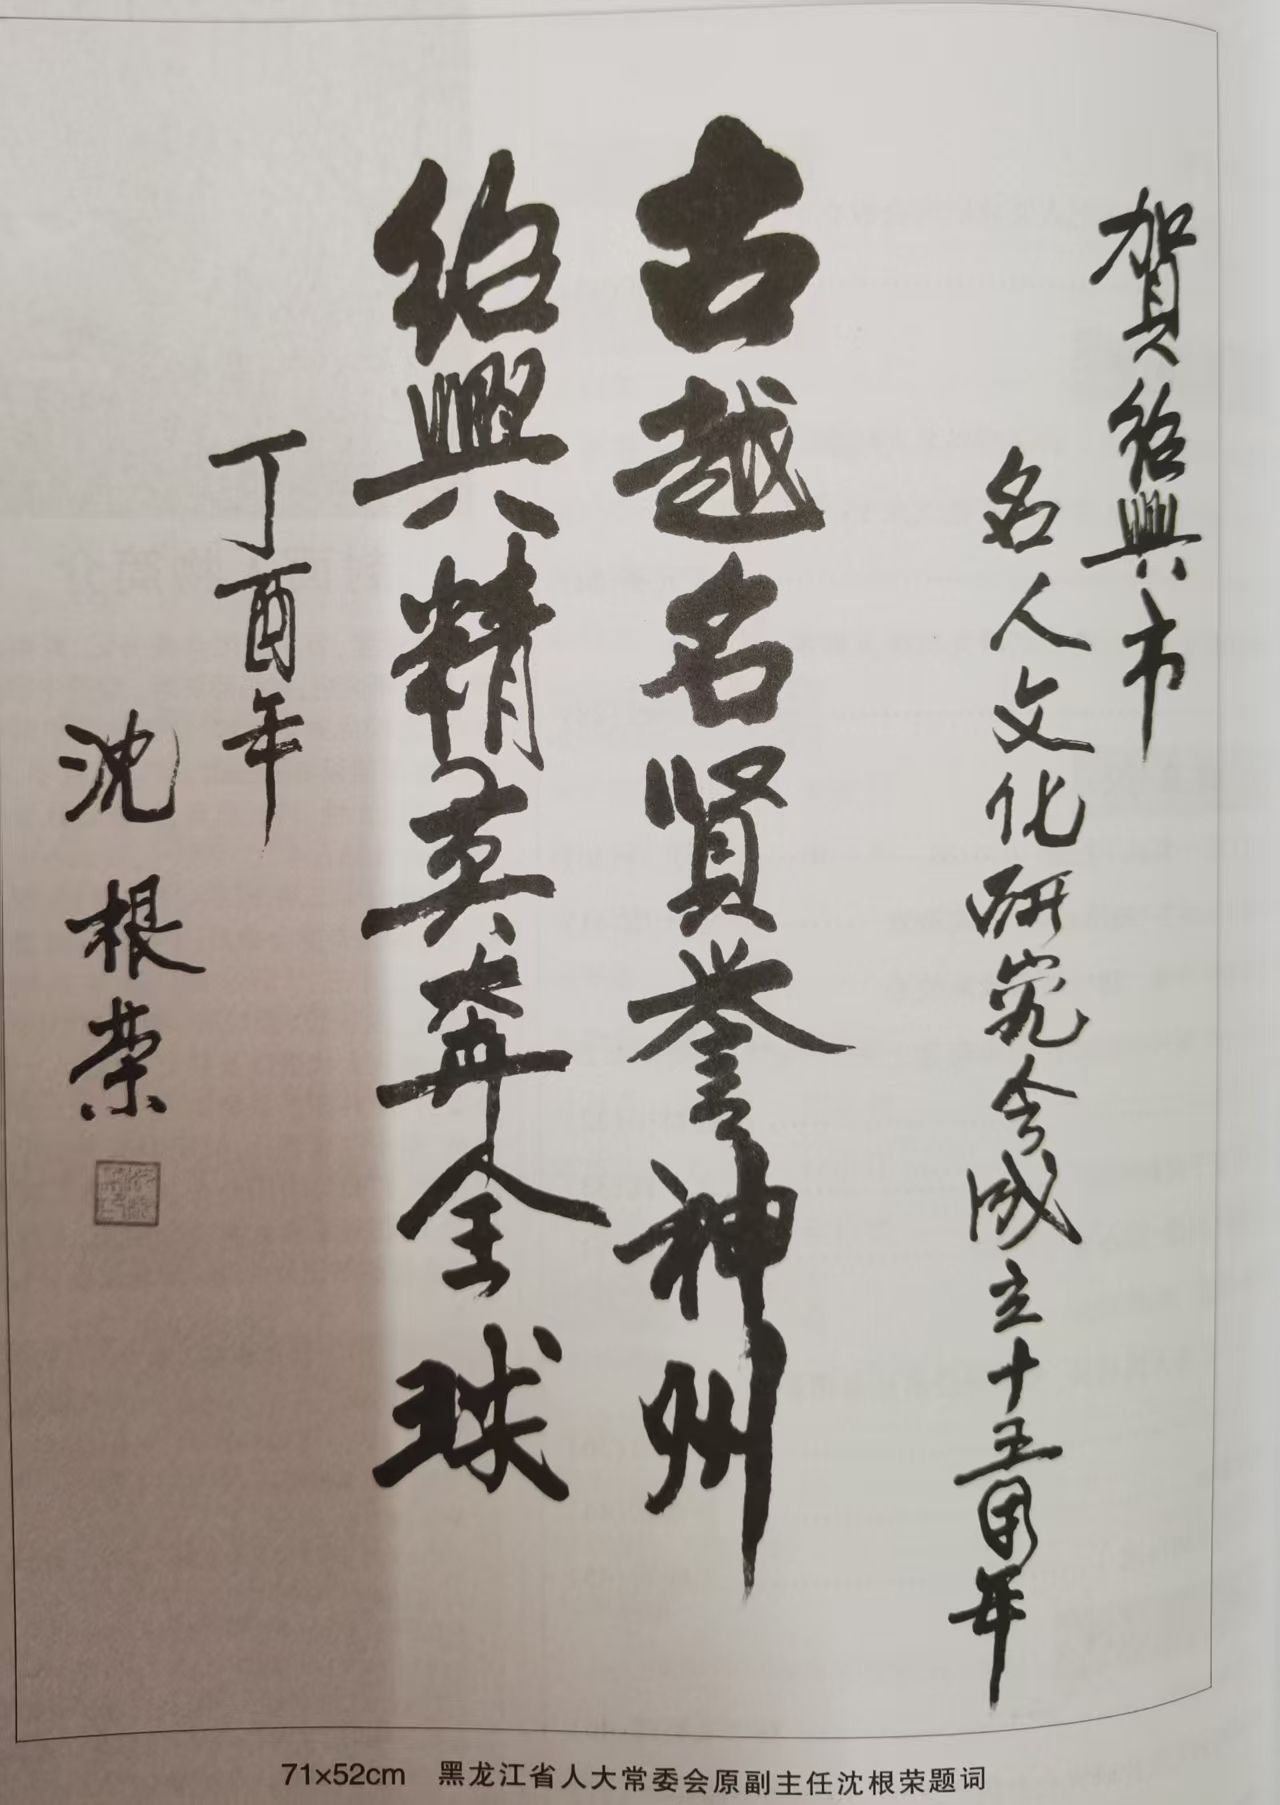 賀绍興市
名人文化研究会成立十五周年
古越名賢誉神州
绍興精英奔全球
丁酉年
沈根荣
71×52cm 黑龙江省人大常委会原副主任沈根荣题词